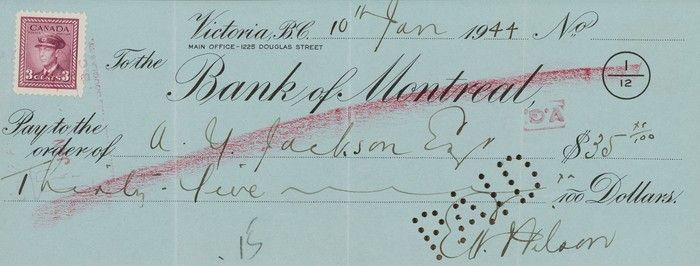 CANADA
3 CENTS 3
Victoria, B.C. 10th Jan 1944 No
MAIN OFFICE - 1225 DOUGLAS STREET
To the
Bank of Montreal,
1
12
D.A.
Pay to the
order of A. Y. Jackson Esq $35 xx/100
Thirty-five xx/100 Dollars.
PAID
13